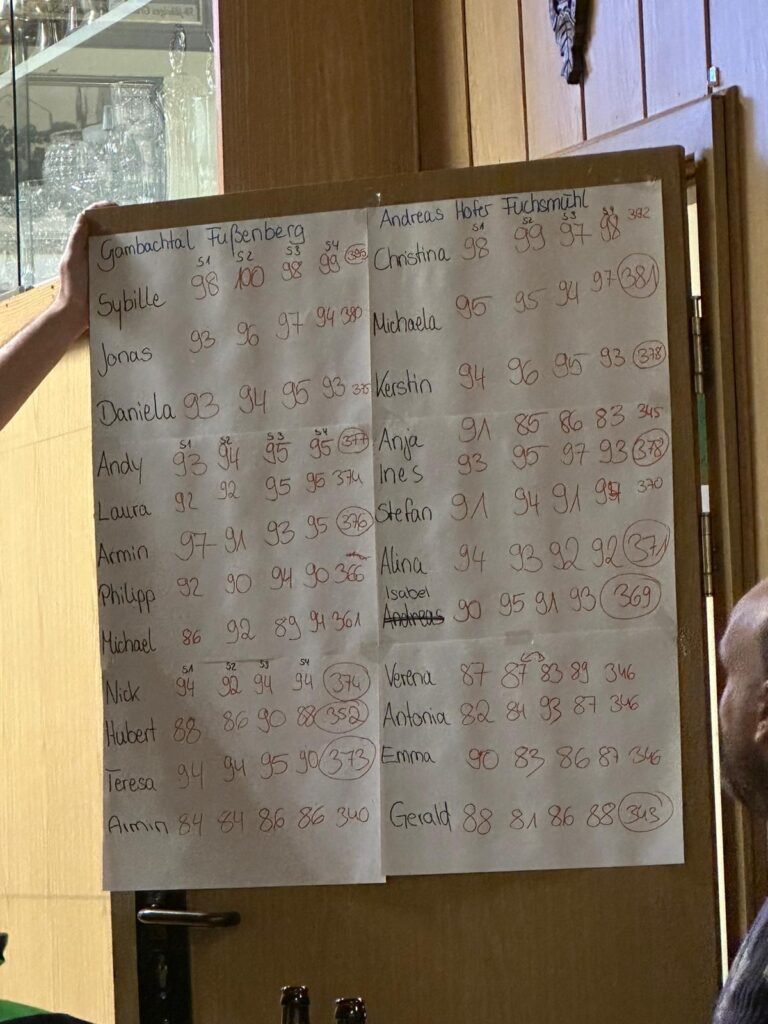 Gambachtal Fußenberg
S1 S2 S3 S4
Sybille 98 100 98 99 395
Jonas 93 96 97 94 380
Daniela 93 94 95 93 375
S1 S2 S3 S4
Andy 93 94 95 95 377
Laura 92 92 95 95 374
Armin 97 91 93 95 376
Philipp 92 90 94 90 366
Michael 86 92 89 94 361
S1 S2 S3 S4
Nick 94 92 94 94 374
Hubert 88 86 90 88 352
Teresa 94 94 95 90 373
Armin 84 84 86 86 340
Andreas Hofer Fuchsmühl
S1 S2 S3 S4
Christina 98 99 97 98 392
Michaela 95 95 94 97 381
Kerstin 94 96 95 93 378
Anja 91 85 86 83 345
Ines 93 95 97 93 378
Stefan 91 94 91 94 370
Alina 94 93 92 92 371
Isabel
Andreas 90 95 91 93 369
Verena 87 87 83 89 346
Antonia 82 84 93 87 346
Emma 90 83 86 87 346
Gerald 88 81 86 88 343